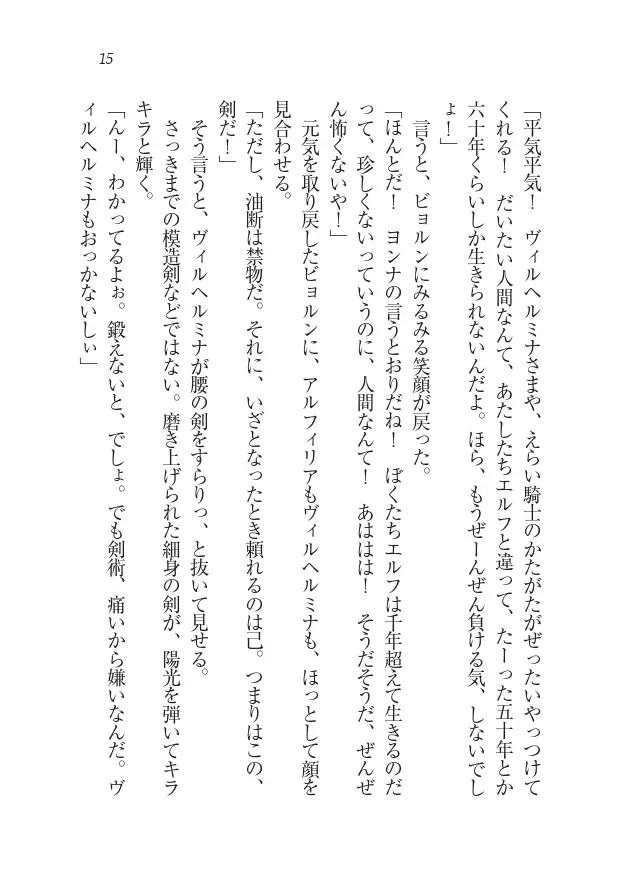 15
「平気平気！　ヴィルヘルミナさまや、えらい騎士のかたがたがぜったいやっつけて
くれる！　だいたい人間なんて、あたしたちエルフと違って、たーった五十年とか
六十年くらいしか生きられないんだよ。ほら、もうぜーんぜん負ける気、しないでし
ょ！」
　言うと、ビョルンにみるみる笑顔が戻った。
「ほんとだ！　ヨンナの言うとおりだね！　ぼくたちエルフは千年超えて生きるのだ
って、珍しくないっていうのに、人間なんて！　あははは！　そうだそうだ、ぜんぜ
ん怖くないや！」
　元気を取り戻したビョルンに、アルフィリアもヴィルヘルミナも、ほっとして顔を
見合わせる。
「ただし、油断は禁物だ。それに、いざとなったとき頼れるのは己。つまりはこの、
剣だ！」
　そう言うと、ヴィルヘルミナが腰の剣をすらりっ、と抜いて見せる。
　さっきまでの模造剣などではない。磨き上げられた細身の剣が、陽光を弾いてキラ
キラと輝く。
「んー、わかってるよぉ。鍛えないと、でしょ。でも剣術、痛いから嫌いなんだ。ヴ
ィルヘルミナもおっかないしぃ」